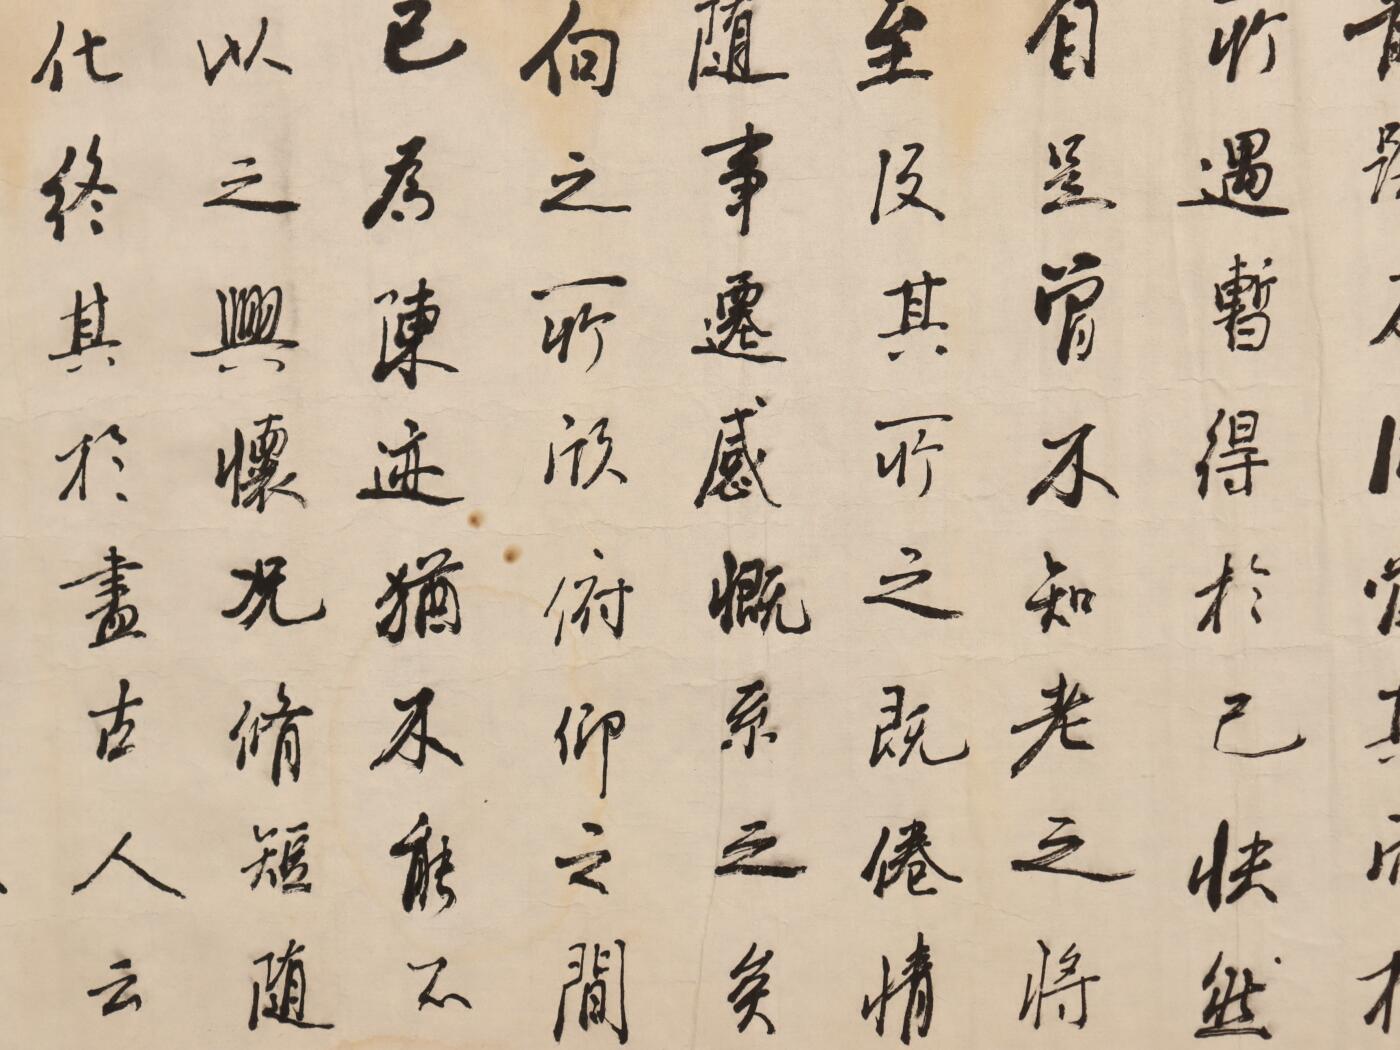 所遇暫得於己快然
自足曾不知老之將
至及其所之既倦情
随事遷感慨系之矣
向之所欣俯仰之間
已為陳迹猶不能不
以之興懷况脩短随
化終其於盡古人云